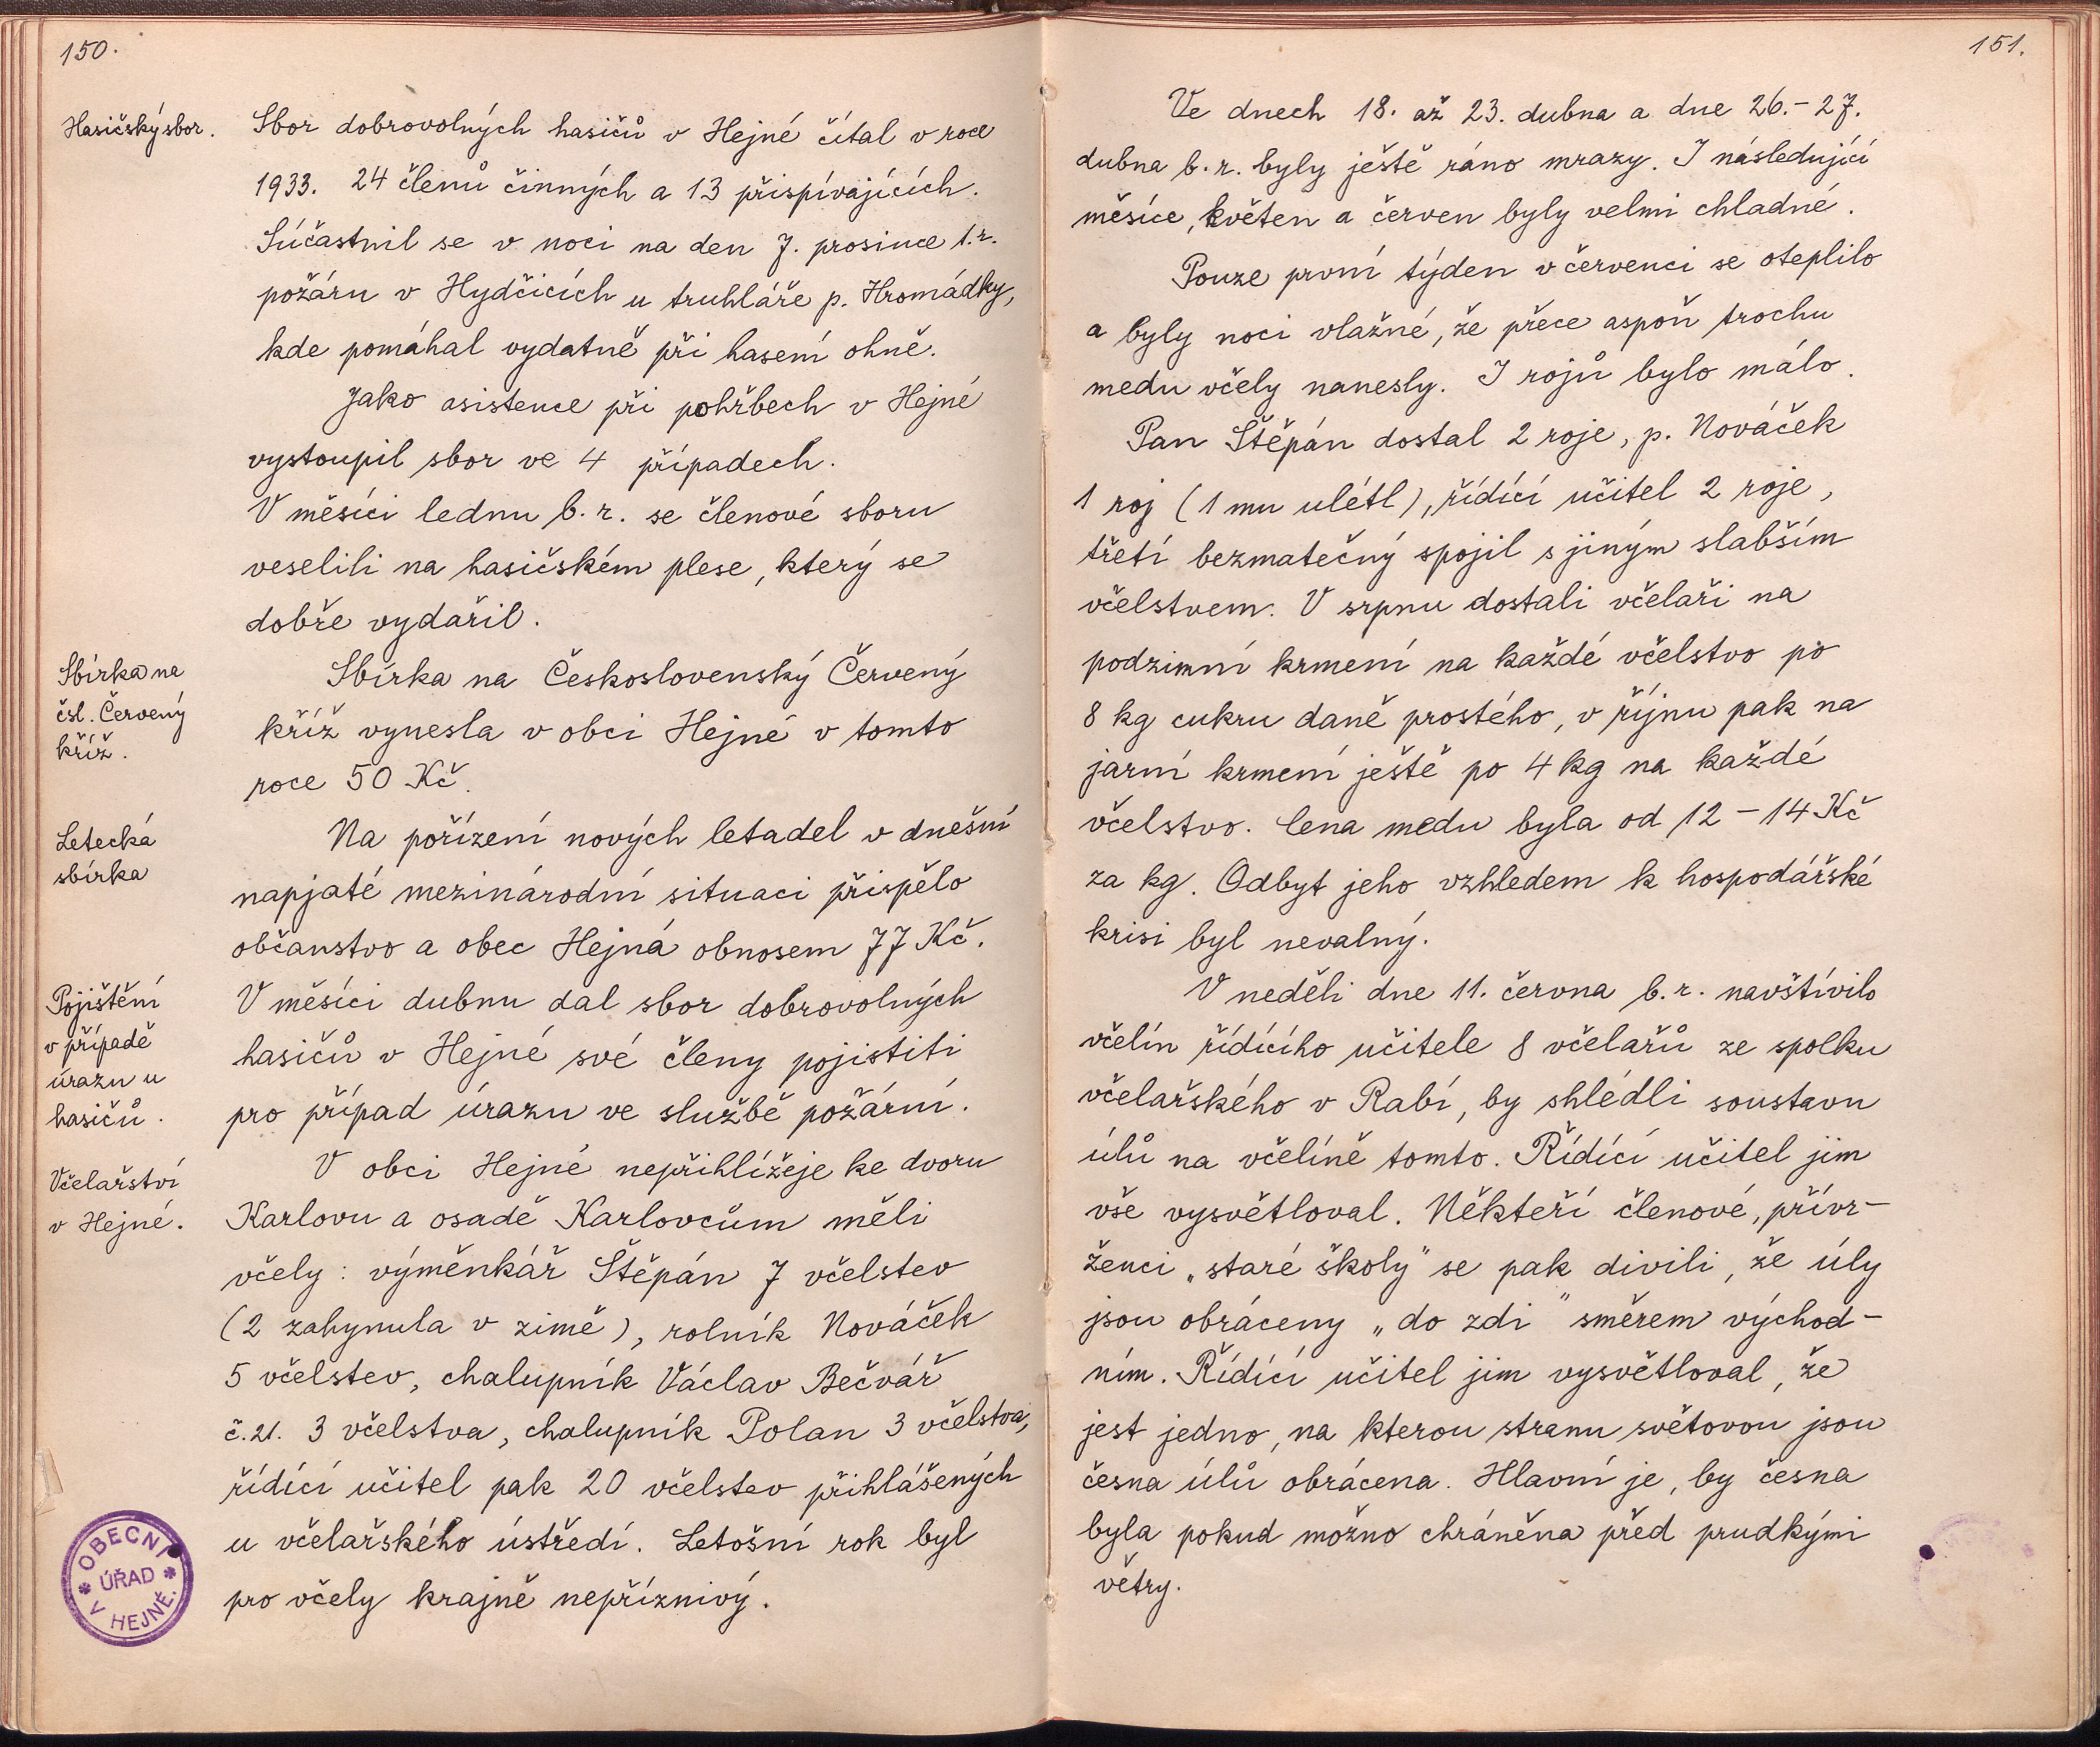 150.
Hasičský sbor.
Sbor dobrovolných hasičů v Hejné čítal v roce
1933. 24 členů činných a 13 přispívajících.
Súčastnil se v noci na den 7. prosince t.r.
požáru v Hydčicích u truhláře p. Hromádky,
kde pomáhal vydatně při hasení ohně.
Jako asistence při pohřbech v Hejné
vystoupil sbor ve 4 případech.
V měsíci lednu b.r. se členové sboru
veselili na hasičském plese, který se
dobře vydařil.
Sbírka na
čsl. Červený
kříž.
Sbírka na Československý Červený
kříž vynesla v obci Hejné v tomto
roce 50 Kč.
Letecká
sbírka
Na pořízení nových letadel v dnešní
napjaté mezinárodní situaci přispělo
občanstvo a obec Hejná obnosem 77 Kč.
Pojištění
v případě
úrazu u
hasičů.
V měsíci dubnu dal sbor dobrovolných
hasičů v Hejné své členy pojistiti
pro případ úrazu ve službě požární.
Včelařství
v Hejné.
V obci Hejné nepřihlížeje ke dvoru
Karlovu a osadě Karlovcům měli
včely: výměnkář Štěpán 7 včelstev
(2 zahynula v zimě), rolník Nováček
5 včelstev, chalupník Václav Bečvář
č. 21. 3 včelstva, chalupník Polan 3 včelstva,
řídící učitel pak 20 včelstev přihlášených
u včelařského ústředí. Letošní rok byl
pro včely krajně nepříznivý.
OBECNÍ
ÚŘAD
V HEJNĚ.
151.
Ve dnech 18. až 23. dubna a dne 26.-27.
dubna b.r. byly ještě ráno mrazy. I následující
měsíce, květen a červen byly velmi chladné.
Pouze první týden v červenci se oteplilo
a byly noci vlažné, že přece aspoň trochu
medu včely nanesly. I rojů bylo málo.
Pan Štěpán dostal 2 roje, p. Nováček
1 roj (1 mu ulétl), řídící učitel 2 roje,
třetí bezmatečný spojil s jiným slabším
včelstvem. V srpnu dostali včelaři na
podzimní krmení na každé včelstvo po
8 kg cukru daně prostého, v říjnu pak na
jarní krmení ještě po 4 kg na každé
včelstvo. Cena medu byla od 12-14 Kč
za kg. Odbyt jeho vzhledem k hospodářské
krisi byl nevalný.
V neděli dne 11. června b.r. navštívilo
včelín řídícího učitele 8 včelařů ze spolku
včelařského v Rabí, by shlédli soustavu
úlů na včelíně tomto. Řídící učitel jim
vše vysvětloval. Někteří členové, přívr-
ženci „staré školy" se pak divili, že úly
jsou obráceny „do zdi" směrem východ-
ním. Řídící učitel jim vysvětloval, že
jest jedno, na kterou stranu světovou jsou
česna úlů obrácena. Hlavní je, by česna
byla pokud možno chráněna před prudkými
větry.